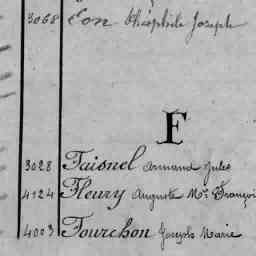 3068 Eon Théophile Joseph
F
3028 Faisnel Armand Jules
4124 Fleury Auguste Mie Françoi
4003 Fourchon Joseph Marie